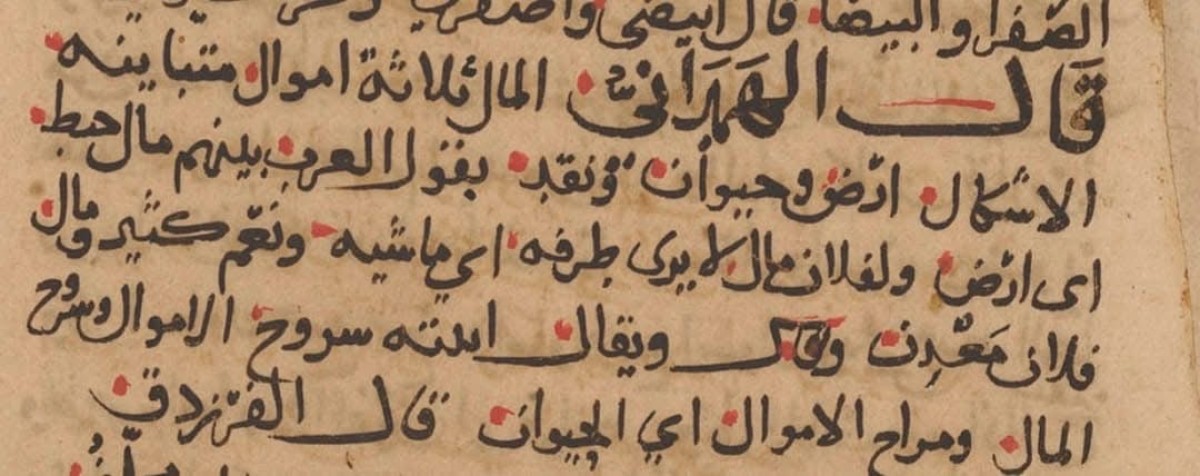 الصفرا والبيضا قال ابيضى واصفرى
قال الهمداني المال ثلاثة اموال متباينه
الاشكال ارض وحيوان ونقد يقول العرب بينهم مال حبط
اى ارض ولفلان مال لا يرى طرفه اي ماشيه ونعم كثير ومال
فلان معدن ويقال اتيته سروح الاموال وسروح
المال ومراح الاموال اي الحيوان قال الفرزدق